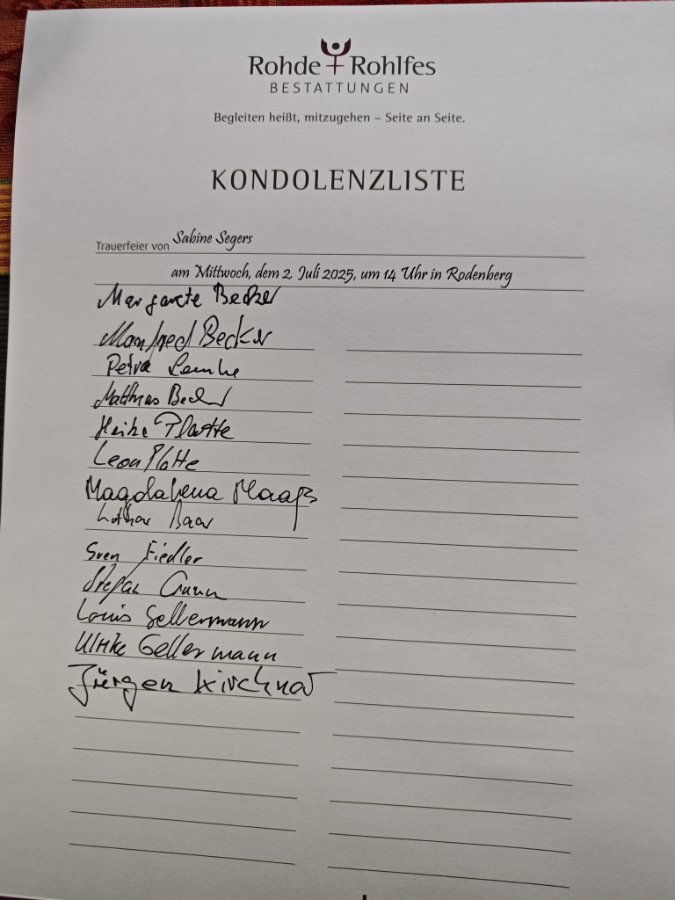 Rohde Rohlfes
BESTATTUNGEN
Begleiten heißt, mitzugehen – Seite an Seite.
KONDOLENZLISTE
Trauerfeier von Sabine Segers
am Mittwoch, dem 2. Juli 2025, um 14 Uhr in Rodenberg
Margarete Becker
Manfred Becker
Petra Lemke
Matthias Becker
Heike Platte
Leon Platte
Magdalena Maaß
Lothar Baar
Sven Fiedler
Stefan
Louis Gellermann
Ulrike Gellermann
Jürgen Kirchner